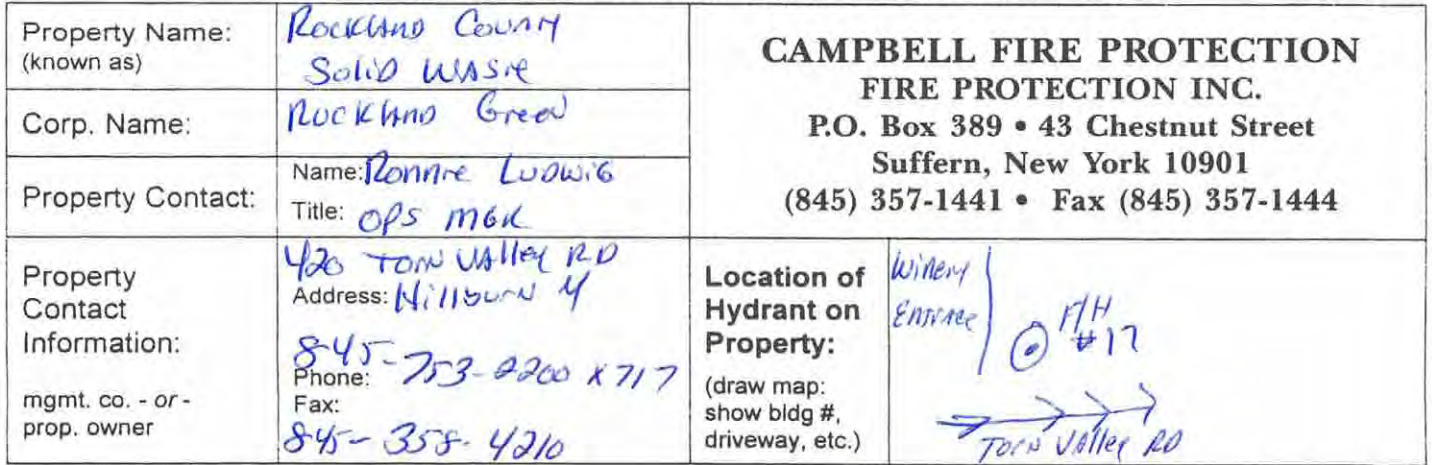 Property Name:
(known as)
Rockland County
Solid Waste
CAMPBELL FIRE PROTECTION
FIRE PROTECTION INC.
P.O. Box 389 • 43 Chestnut Street
Suffern, New York 10901
(845) 357-1441 • Fax (845) 357-1444
Corp. Name:
Rockland Green
Property Contact:
Name: Ronnie Ludwig
Title: OPS MGR
Property
Contact
Information:
mgmt. co. - or -
prop. owner
420 Torn Valley RD
Address: Hillburn
845-753-2200 x717
Phone:
Fax:
845-358-4210
Location of
Hydrant on
Property:
(draw map:
show bldg #,
driveway, etc.)
Winery
Entrace
F/H
#17
Torn Valley RD